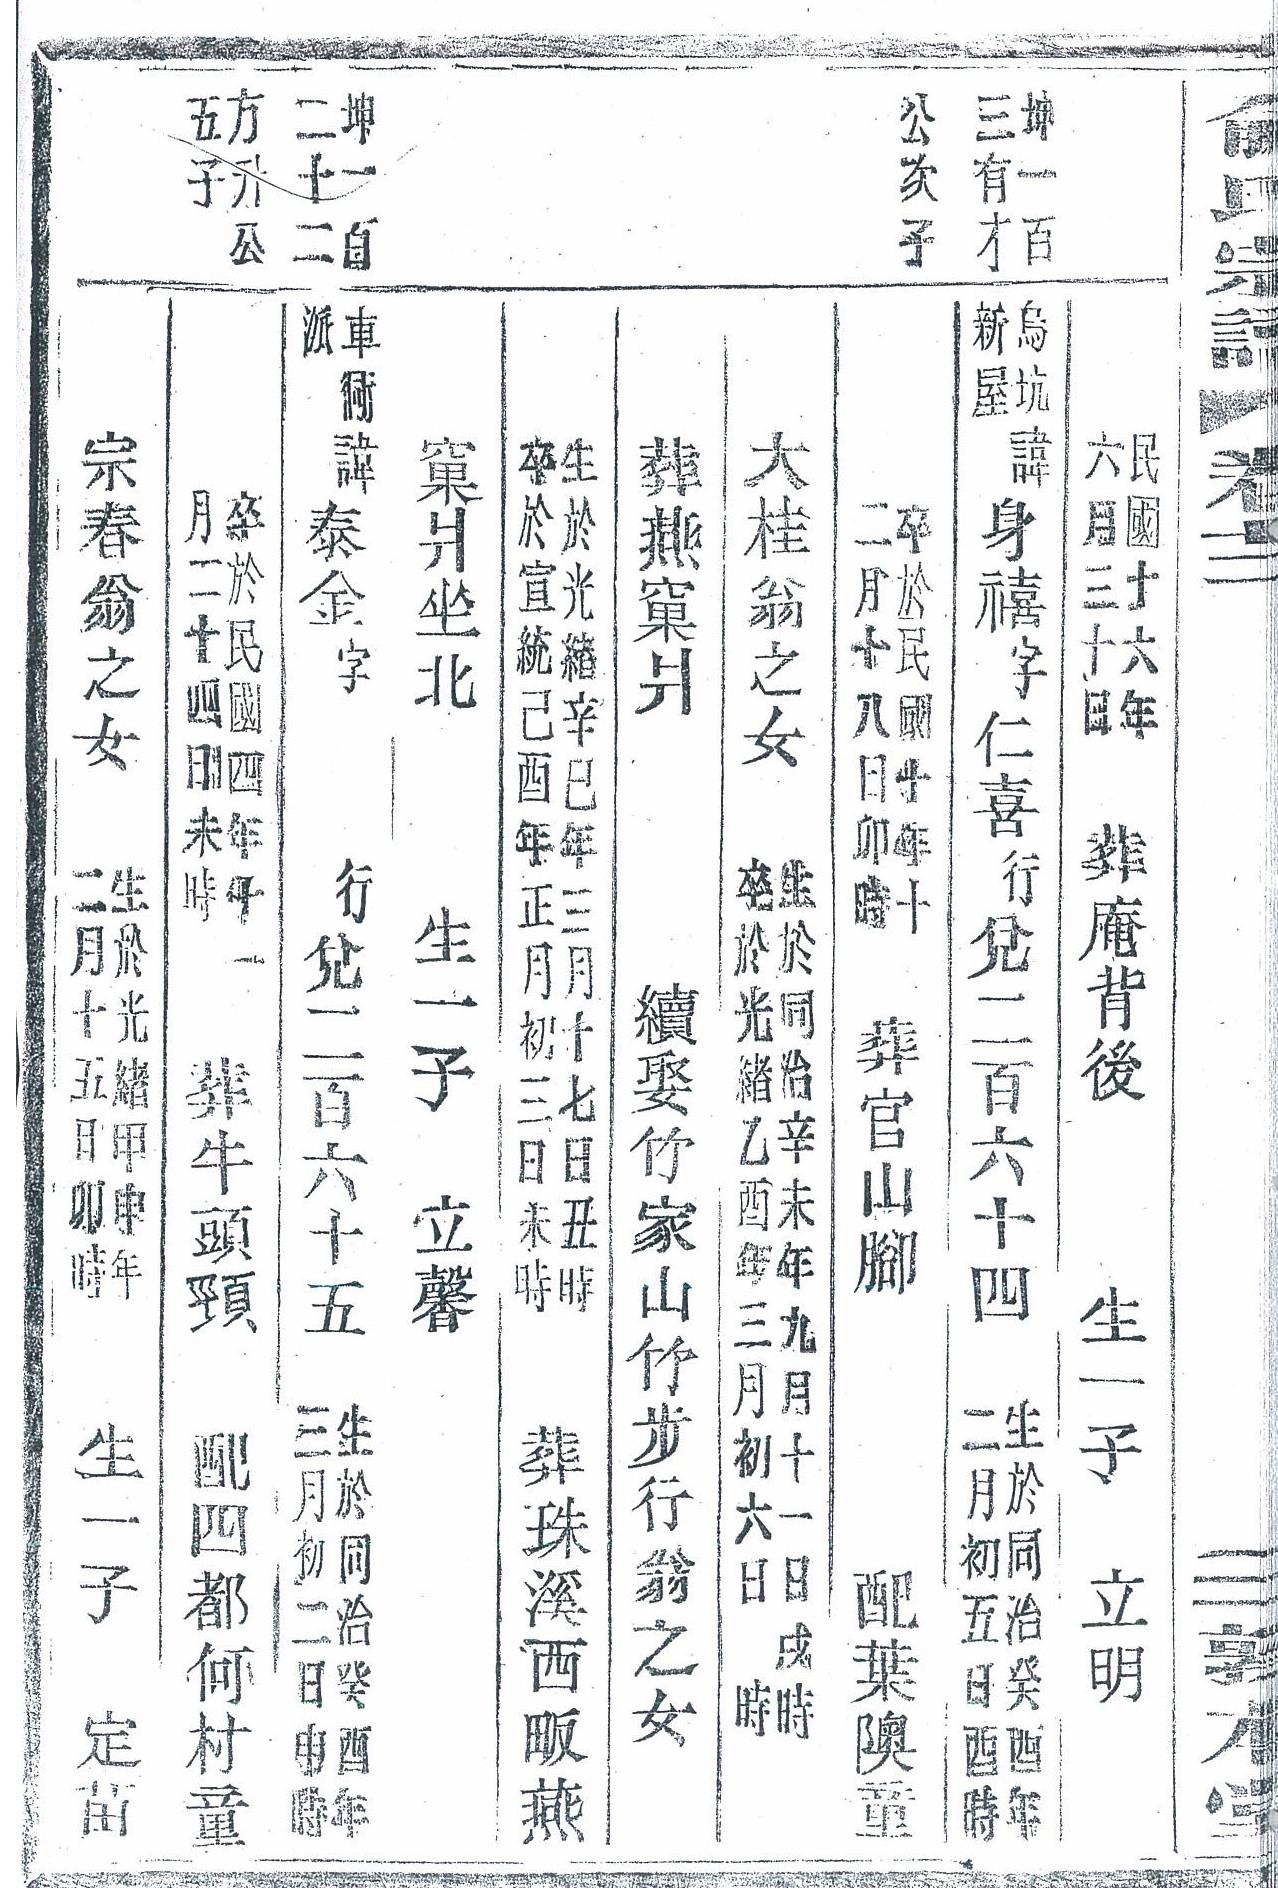 俞氏宗譜
敦本堂
民國十六年
六月三十日
葬庵背後 生一子 立明
坤一百
三有才
公次子
烏坑
新屋
諱身禧字仁喜行兌二百六十四
生於同治癸酉年
二月初五日酉時
卒於民國十年十
二月十八日卯時
葬官山腳 配葉隩童
大桂翁之女
生於同治辛未年九月十一日戌時
卒於光緒乙酉年三月初六日 時
葬燕窠爿 續娶竹家山竹步行翁之女
生於光緒辛巳年三月十七日丑時
卒於宣統己酉年正月初三日未時
葬珠溪西畈燕
窠爿坐北 生一子 立馨
坤一百
二十二
方升公
五子
車衕
派
諱泰金字 行兌二百六十五
生於同治癸酉年
三月初二日申時
卒於民國四年十一
月二十四日未時
葬牛頭頸 配四都何村童
宗春翁之女
生於光緒甲申年
二月十五日卯時
生一子 定苗